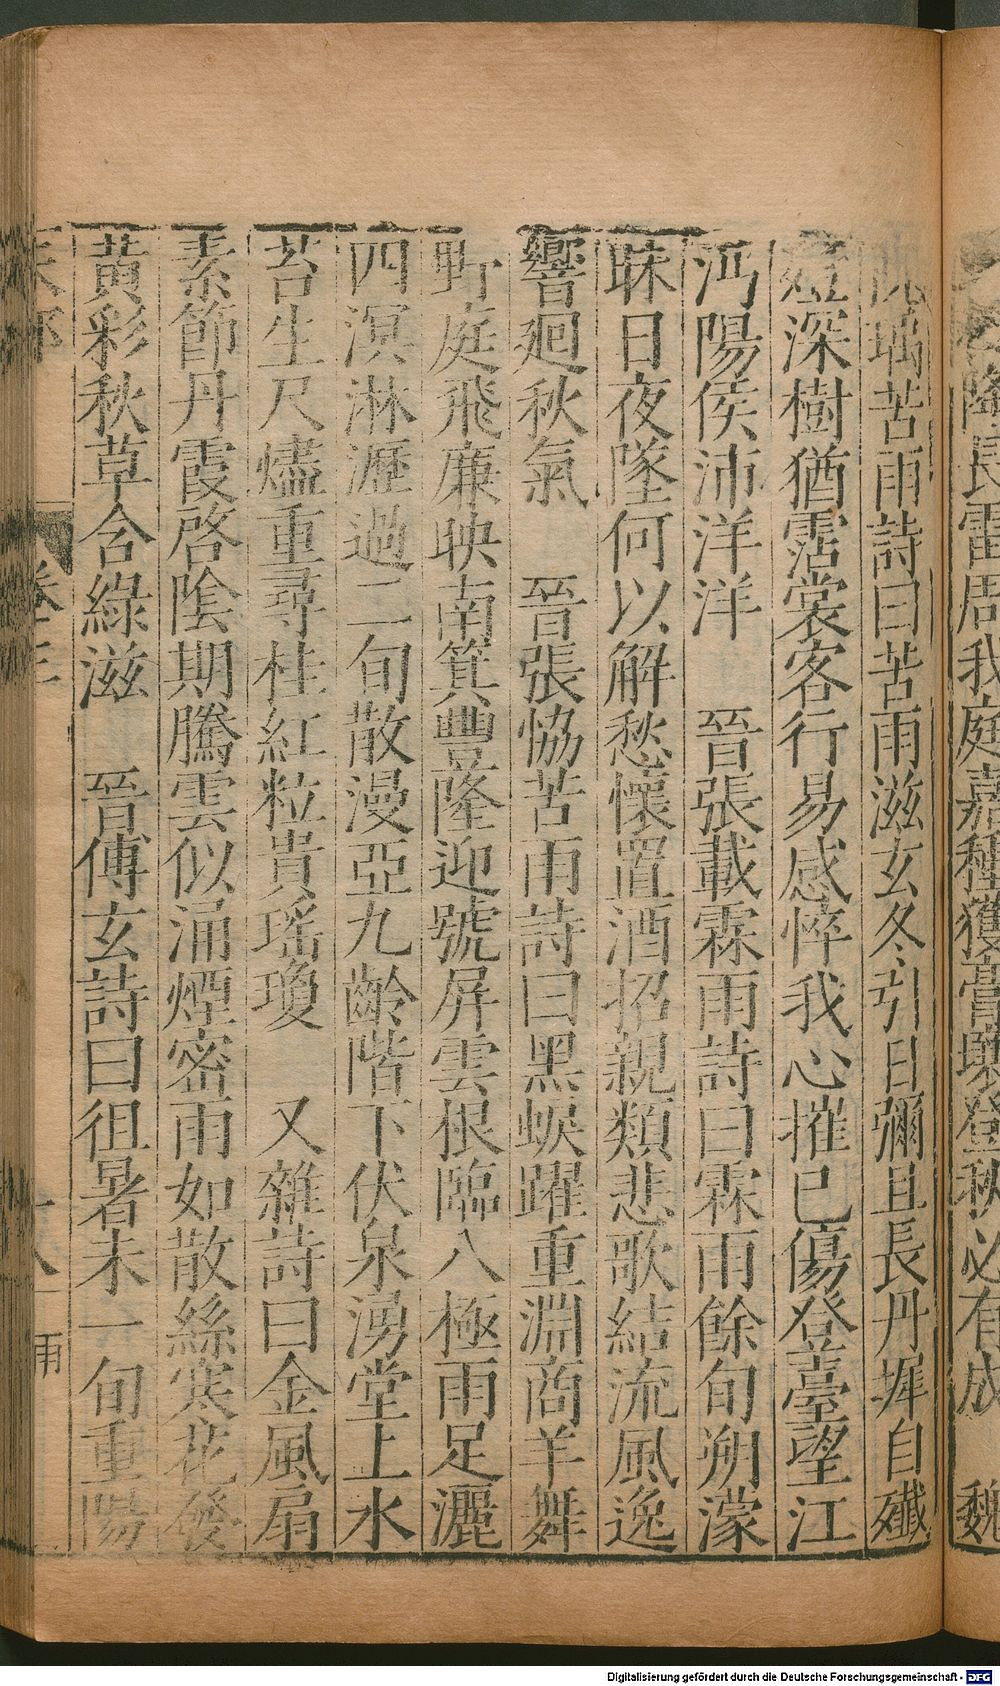 隆長霤周我庭嘉種獲膏壤登秋必有成　魏
阮瑀苦雨詩曰苦雨滋玄冬引日彌且長丹墀自殲
殪深樹猶霑裳客行易感悴我心摧已傷登臺望江
沔陽侯沛洋洋　晉張載霖雨詩曰霖雨餘旬朔濛
昧日夜墜何以解愁懷置酒招親類悲歌結流風逸
響迴秋氣　晉張協苦雨詩曰黑蜧躍重淵商羊舞
野庭飛廉映南箕豐隆迎號屏雲根臨八極雨足灑
四溟淋瀝過二旬散漫亞九齡階下伏泉湧堂上水
苔生尺燼重尋桂紅粒貴瑤瓊　又雜詩曰金風扇
素節丹霞啓陰期騰雲似涌煙密雨如散絲寒花發
黃彩秋草含綠滋　晉傅玄詩曰徂暑未一旬重陽
卷二 十八 雨
Digitalisierung gefördert durch die Deutsche Forschungsgemeinschaft - DFG